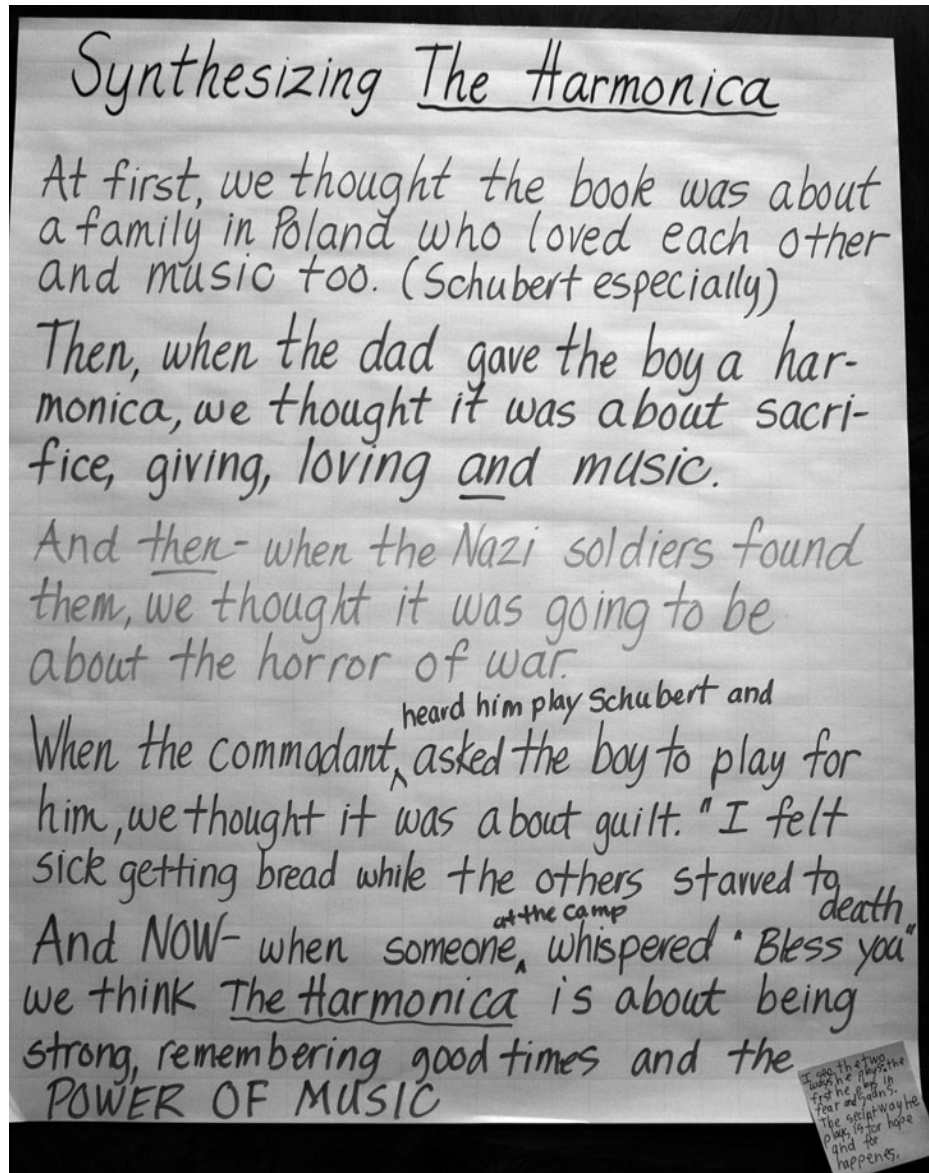 Synthesizing The Harmonica
At first, we thought the book was about
a family in Poland who loved each other
and music too. (Schubert especially)
Then, when the dad gave the boy a har-
monica, we thought it was about sacri-
fice, giving, loving and music.
And then- when the Nazi soldiers found
them, we thought it was going to be
about the horror of war.
heard him play Schubert and
When the commodant, asked the boy to play for
him, we thought it was about guilt. "I felt
sick getting bread while the others starved to
death"
at the camp
And NOW- when someone, whispered "Bless you"
we think The Harmonica is about being
strong, remembering good times and the
POWER OF MUSIC
I see the two
ways he plays. the
first he plays in
fear and
The way he
plays, is for hope
and for
happenes.